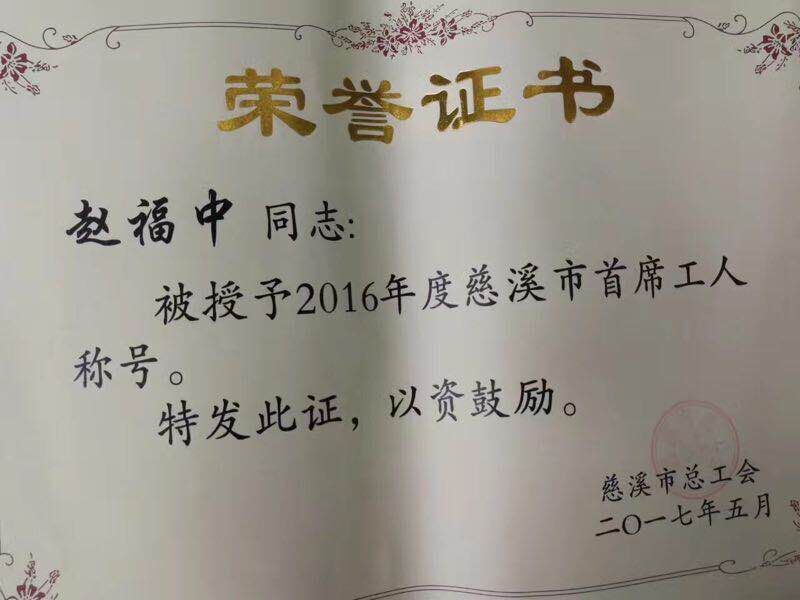 荣誉证书
赵福中 同志:
被授予2016年度慈溪市首席工人
称号。
特发此证，以资鼓励。
慈溪市总工会
二〇一七年五月